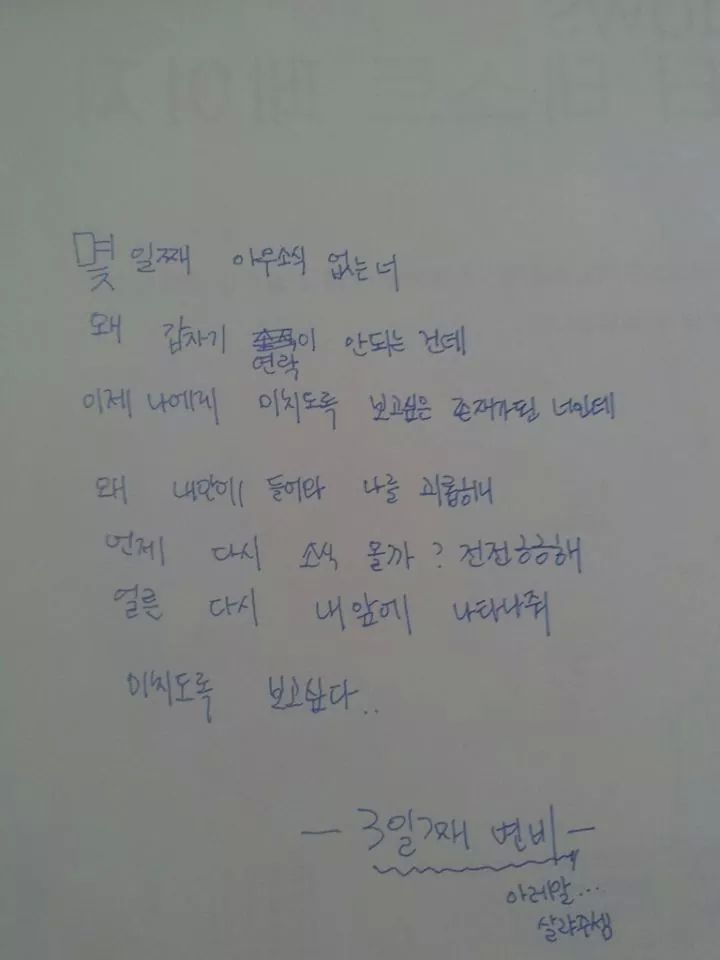 몇 일째 아무소식 없는 너
왜 갑자기 이 안되는 건데
연락
이제 나에게 미치도록 보고싶은 존재가된 너인데
왜 내안에 들어와 나를 괴롭히니
언제 다시 소식 올까? 전전긍긍해
얼른 다시 내 앞에 나타나줘
미치도록 보고싶다..
- 3일째 변비 -
살랴주셈